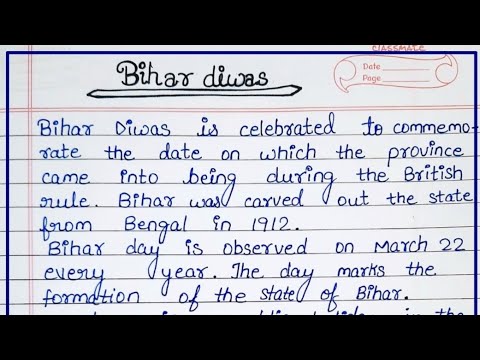 CLASSMATE
Date
Page
Bihar diwas
Bihar Diwas is celebrated to commemo-
rate the date on which the province
came into being during the British
rule. Bihar was carved out the state
from Bengal in 1912.
Bihar day is observed on March 22
every year. The day marks the
formation of the state of Bihar.